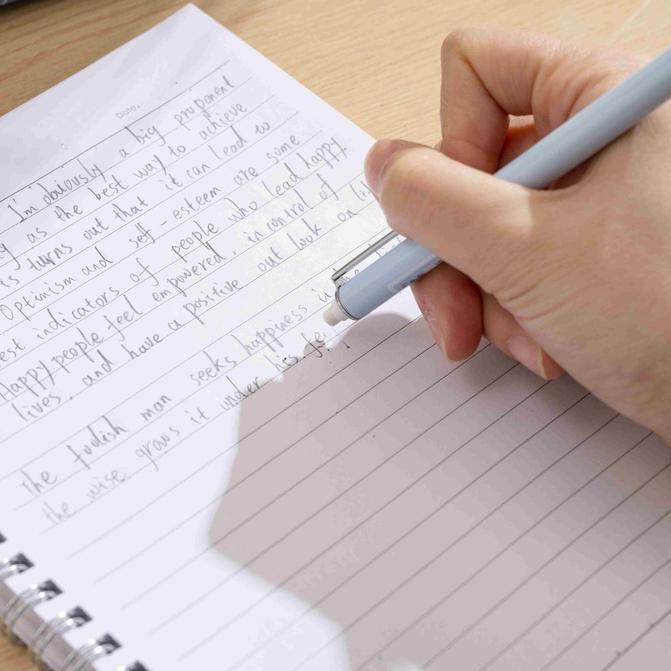 Date.
I'm obviously a big proponent
as the best way to achieve
is turns out that it can lead to
Optimism and self-esteem are some
est indicators of people who lead happy
Happy people feel empowered, in control of
lives, and have a positive out look on
The foolish man seeks happiness in
the wise grows it under his fe